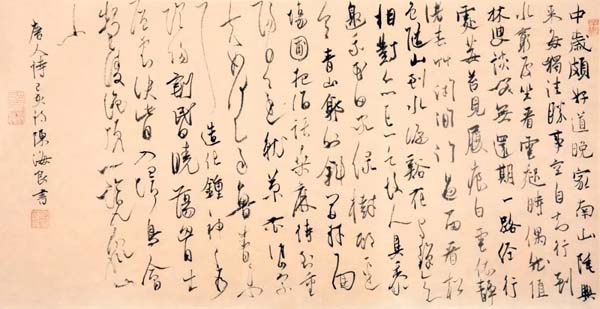 中歲頗好道晚家南山陲興
來每獨往勝事空自知行到
水窮處坐看雲起時偶然值
林叟談笑無還期一路經行
處莓苔見履痕白雲依靜
渚春草閉閑門過雨看松
色隨山到水源溪花與禪意
相對亦忘言故人具雞黍
邀我至田家綠樹村邊
合青山郭外斜開軒面
場圃把酒話桑麻待到重
陽日還來就菊花岱宗
夫如何齊魯青未
了造化鍾神秀
陰陽割昏曉蕩胸生
層雲決眥入歸鳥會
當凌絕頂一覽眾山
小
唐人詩陳海良書